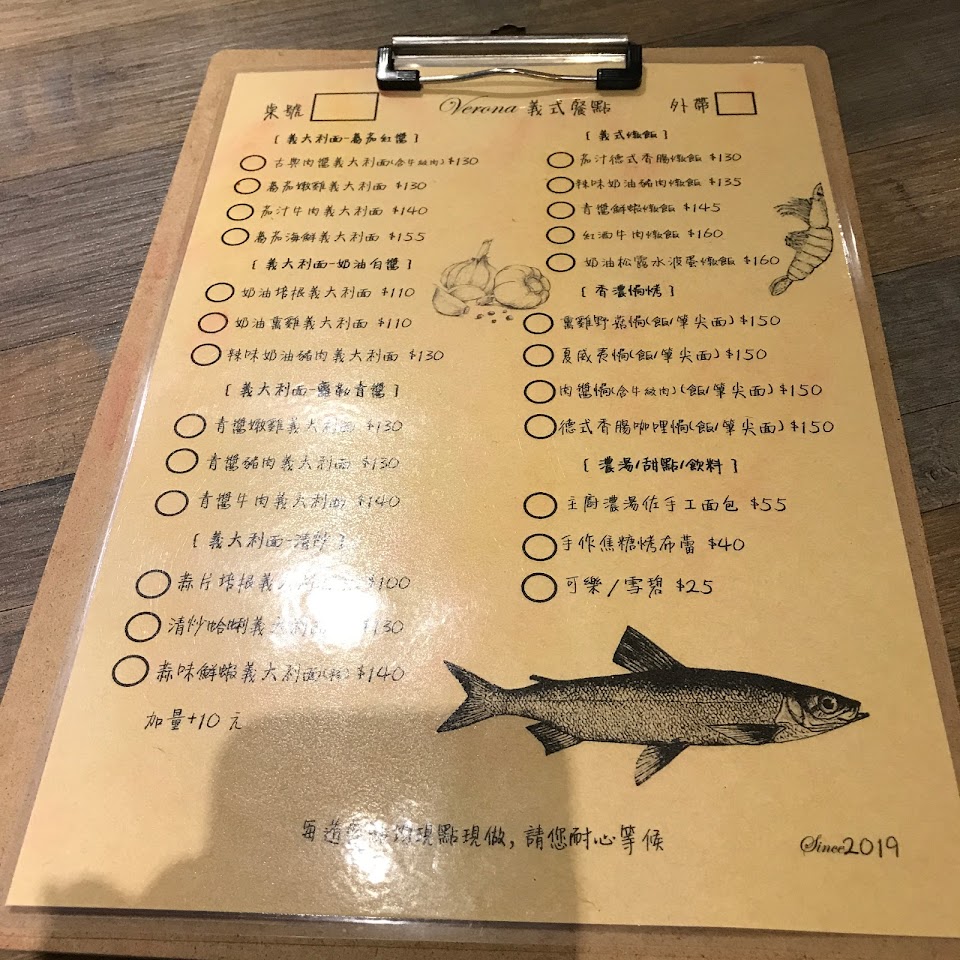 桌號
Verona 義式餐點
外帶
[ 義大利面-蕃茄紅醬 ]
古典肉醬義大利面(含牛絞肉) $130
蕃茄嫩雞義大利面 $130
茄汁牛肉義大利面 $140
蕃茄海鮮義大利面 $155
[ 義大利面-奶油白醬 ]
奶油培根義大利面 $110
奶油燻雞義大利面 $110
辣味奶油豬肉義大利面 $130
[ 義大利面-羅勒青醬 ]
青醬嫩雞義大利面 $130
青醬豬肉義大利面 $130
青醬牛肉義大利面 $140
[ 義大利面-清炒 ]
蒜片培根義大 $100
清炒蛤蜊義大利面 $130
蒜味鮮蝦義大利面 $140
加量+10 元
[ 義式燉飯 ]
茄汁德式香腸燉飯 $130
辣味奶油豬肉燉飯 $135
青醬鮮蝦燉飯 $145
紅酒牛肉燉飯 $160
奶油松露水波蛋燉飯 $160
[ 香濃焗烤 ]
燻雞野菇焗(飯/筆尖面) $150
夏威夷焗(飯/筆尖面) $150
肉醬焗(含牛絞肉)(飯/筆尖面) $150
德式香腸咖哩焗(飯/筆尖面) $150
[ 濃湯/甜點/飲料 ]
主廚濃湯佐手工面包 $55
手作焦糖烤布蕾 $40
可樂/雪碧 $25
每道 現點現做,請您耐心等候
Since2019